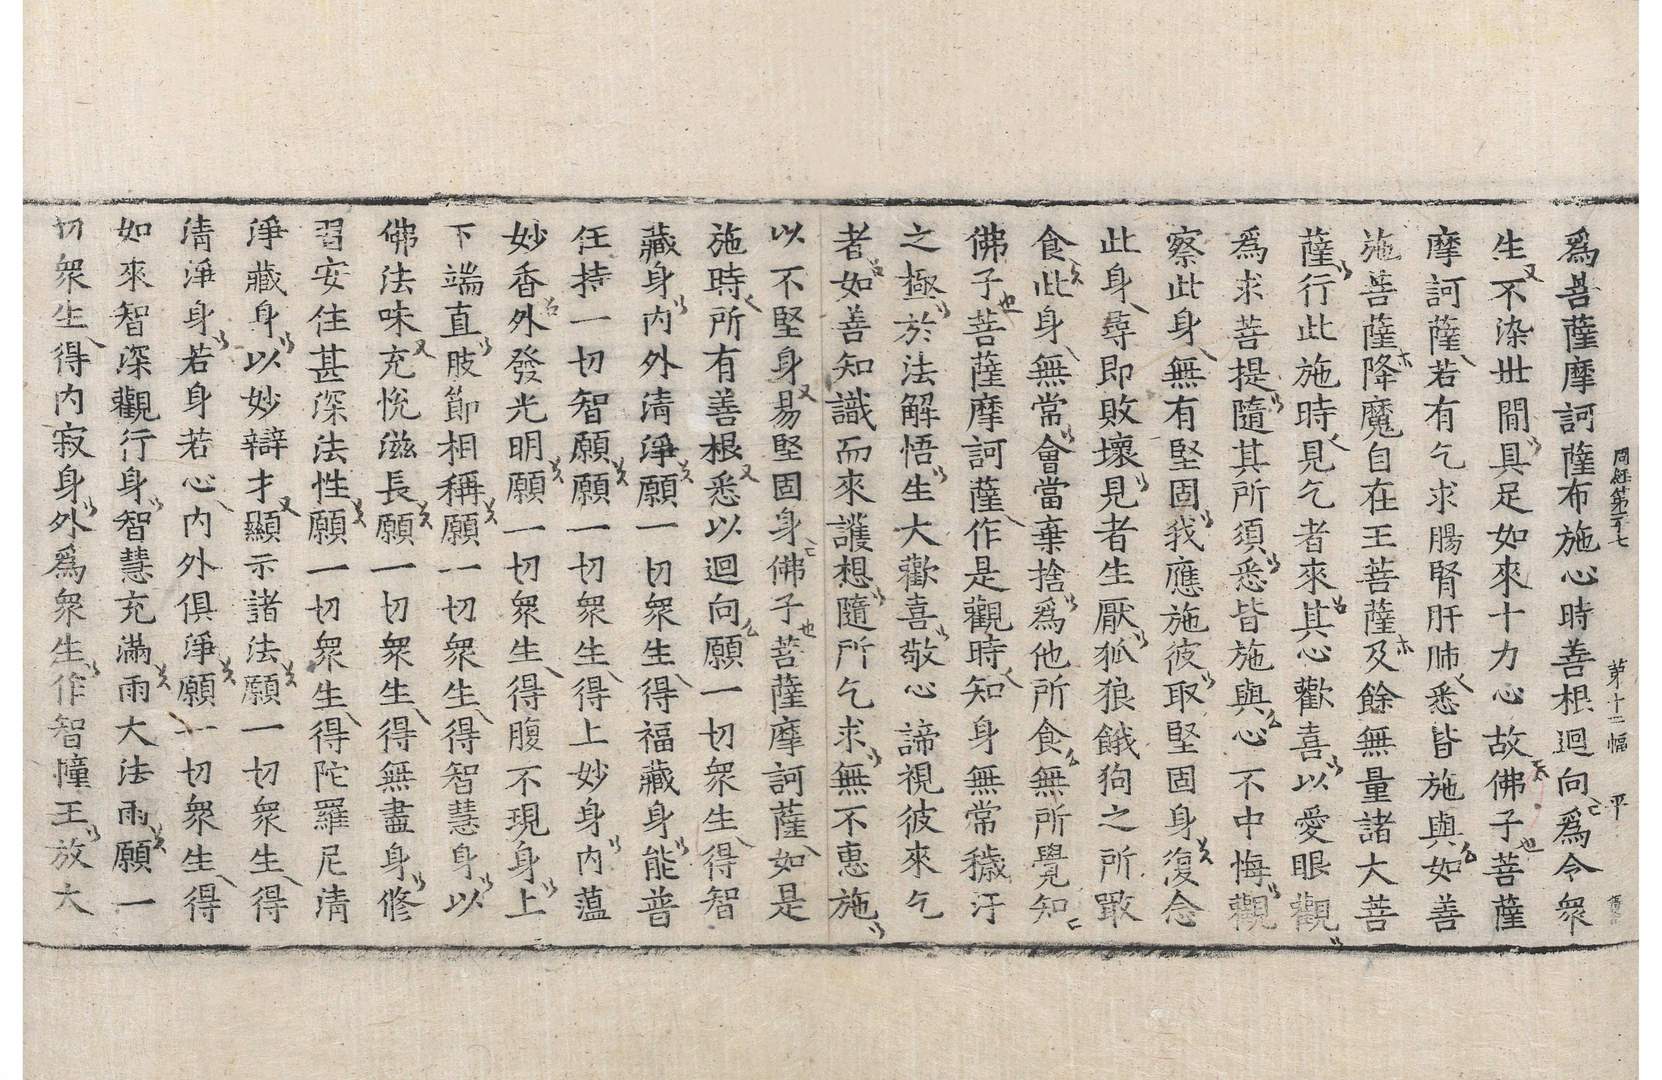 周經第二十七 第十二幅 平
爲菩薩摩訶薩布施心時善根迴向爲令衆
生不染世間具足如來十力心故佛子菩薩
摩訶薩若有乞求腸腎肝肺悉皆施與如善
施菩薩降魔自在王菩薩及餘無量諸大菩
薩行此施時見乞者來其心歡喜以愛眼觀
爲求菩提隨其所須悉皆施與心不中悔觀
察此身無有堅固我應施彼取堅固身復念
此身尋即敗壞見者生厭狐狼餓狗之所噉
食此身無常會當棄捨爲他所食無所覺知
佛子菩薩摩訶薩作是觀時知身無常穢汙
之極於法解悟生大歡喜敬心諦視彼來乞
者如善知識而來護想隨所乞求無不惠施
以不堅身易堅固身佛子菩薩摩訶薩如是
施時所有善根悉以迴向願一切衆生得智
藏身內外清淨願一切衆生得福藏身能普
任持一切智願願一切衆生得上妙身內蘊
妙香外發光明願一切衆生得腹不現身上
下端直肢節相稱願一切衆生得智慧身以
佛法味充悅滋長願一切衆生得無盡身修
習安住甚深法性願一切衆生得陀羅尼清
淨藏身以妙辯才顯示諸法願一切衆生得
清淨身若身若心內外俱淨願一切衆生得
如來智深觀行身智慧充滿雨大法雨願一
切衆生得內寂身外爲衆生作智幢王放大